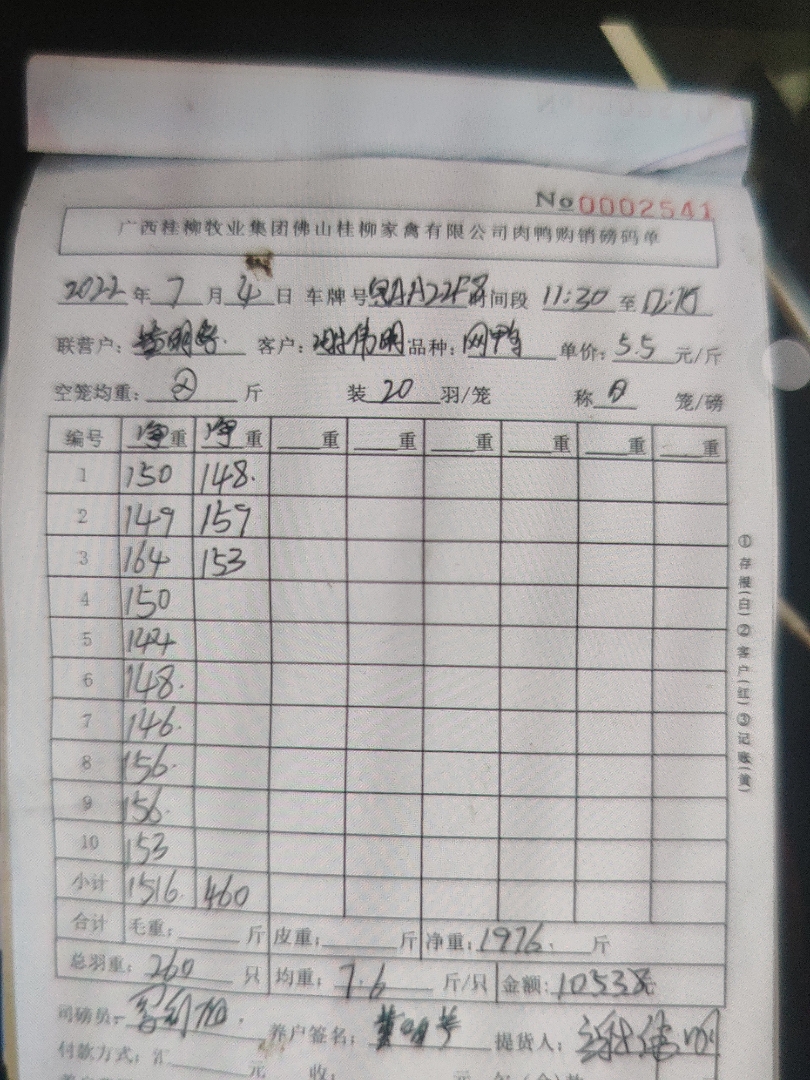 No 0002541
广西桂柳牧业集团佛山桂柳家禽有限公司肉鸭购销磅码单
2022 年 7 月 4 日 车牌号 时间段 11:30 至
联营户: 客户: 谢伟明 品种: 网鸭 单价: 5.5 元/斤
空笼均重: 斤 装 20 羽/笼 称 笼/磅
编号 净重 净重 重 重 重 重 重 重
1 150 148.
2 149 159
3 164 153
4 150
5 144
6 148.
7 146.
8 156.
9 156.
10 153
小计 1516. 460
合计 毛重: 斤 皮重: 斤 净重: 1976. 斤
总羽重: 260 只 均重: 7.6 斤/只 金额: 10538元
司磅员: 养户签名: 提货人: 谢伟明
付款方式: 汇 元 收:
①存根(白)②客户(红)③记账(黄)